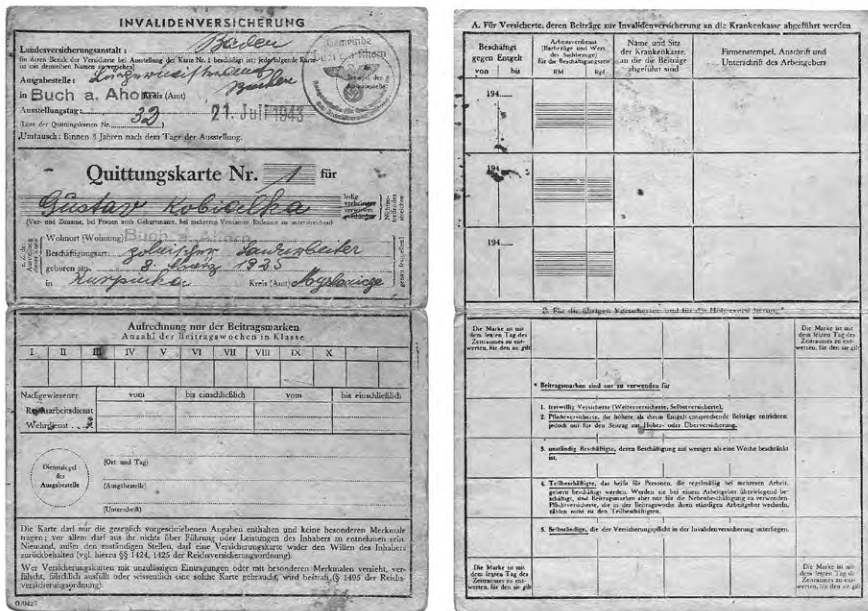 INVALIDENVERSICHERUNG
Landesversicherungsanstalt: Baden
(in deren Bezirk der Versicherte bei Ausstellung der Karte Nr. 1 beschäftigt ist; jede folgende Karte
ist mit demselben Namen zu versehen)
Gemeinde
Ausgabestelle:
in Buch a. Ahorn Kreis (Amt) Buchen
Ausstellungstag: 21. Juli 1943
(Liste der Quittungskarten Nr. 32)
Umtausch: Binnen 3 Jahren nach dem Tage der Ausstellung.
Quittungskarte Nr. 1 für
Gustav Kobialka
ledig
(Vor- und Zuname, bei Frauen auch Geburtsname, bei mehreren Vornamen Rufname zu unterstreichen)
Wohnort (Wohnung) Buch a. Ahorn
Beschäftigungsart: polnischer Landarbeiter
geboren am 8. März 1925
in Kreis (Amt)
Aufrechnung nur der Beitragsmarken
Anzahl der Beitragswochen in Klasse
I II III IV V VI VII VIII IX X
Nachgewiesener vom bis einschließlich vom bis einschließlich
Reichsarbeitsdienst
Wehrdienst
Dienstsiegel
der
Ausgabestelle
(Ort und Tag)
(Ausgabestelle)
(Unterschrift)
Die Karte darf nur die gesetzlich vorgeschriebenen Angaben enthalten und keine besonderen Merkmale
tragen; vor allem darf aus ihr nichts über Führung oder Leistungen des Inhabers zu entnehmen sein.
Niemand, außer den zuständigen Stellen, darf eine Versicherungskarte wider den Willen des Inhabers
zurückbehalten (vgl. hierzu §§ 1424, 1425 der Reichsversicherungsordnung).
Wer Versicherungskarten mit unzulässigen Eintragungen oder mit besonderen Merkmalen versieht, ver-
fälscht, fälschlich ausfüllt oder wissentlich eine solche Karte gebraucht, wird bestraft (§ 1495 der Reichs-
versicherungsordnung).
A. Für Versicherte, deren Beiträge zur Invalidenversicherung an die Krankenkasse abgeführt werden
Beschäftigt
gegen Entgelt
von bis
Arbeitsverdienst
(Barbezüge und Wert
der Sachbezüge)
für die Beschäftigungszeit
RM Rpf
Name und Sitz
der Krankenkasse,
an die die Beiträge
abgeführt sind
Firmenstempel, Anschrift und
Unterschrift des Arbeitgebers
194......
194
194......
B. Für die übrigen Versicherten und für die Höherversicherung.*
Die Marke ist mit
dem letzten Tag des
Zeitraumes zu ent-
werten, für den sie gilt
Die Marke ist mit
dem letzten Tag des
Zeitraumes zu ent-
werten, für den sie gilt
* Beitragsmarken sind nur zu verwenden für
1. freiwillig Versicherte (Weiterversicherte, Selbstversicherte).
2. Pflichtversicherte, die höhere, als ihrem Entgelt entsprechende Beiträge entrichten,
jedoch nur für den Beitrag zur Höher- oder Überversicherung.
3. unständig Beschäftigte, deren Beschäftigung auf weniger als eine Woche beschränkt
ist.
4. Teilbeschäftigte, das heißt für Personen, die regelmäßig bei mehreren Arbeit-
gebern beschäftigt werden. Werden sie bei einem Arbeitgeber überwiegend be-
schäftigt, sind Beitragsmarken aber nur für die Nebenbeschäftigung zu verwenden.
Pflichtversicherte, die in der Beitragswoche ihren ständigen Arbeitgeber wechseln,
zählen nicht zu den Teilbeschäftigten.
5. Selbständige, die der Versicherungspflicht in der Invalidenversicherung unterliegen.
Die Marke ist mit
dem letzten Tag des
Zeitraumes zu ent-
werten, für den sie gilt
Die Marke ist mit
dem letzten Tag des
Zeitraumes zu ent-
werten, für den sie gilt